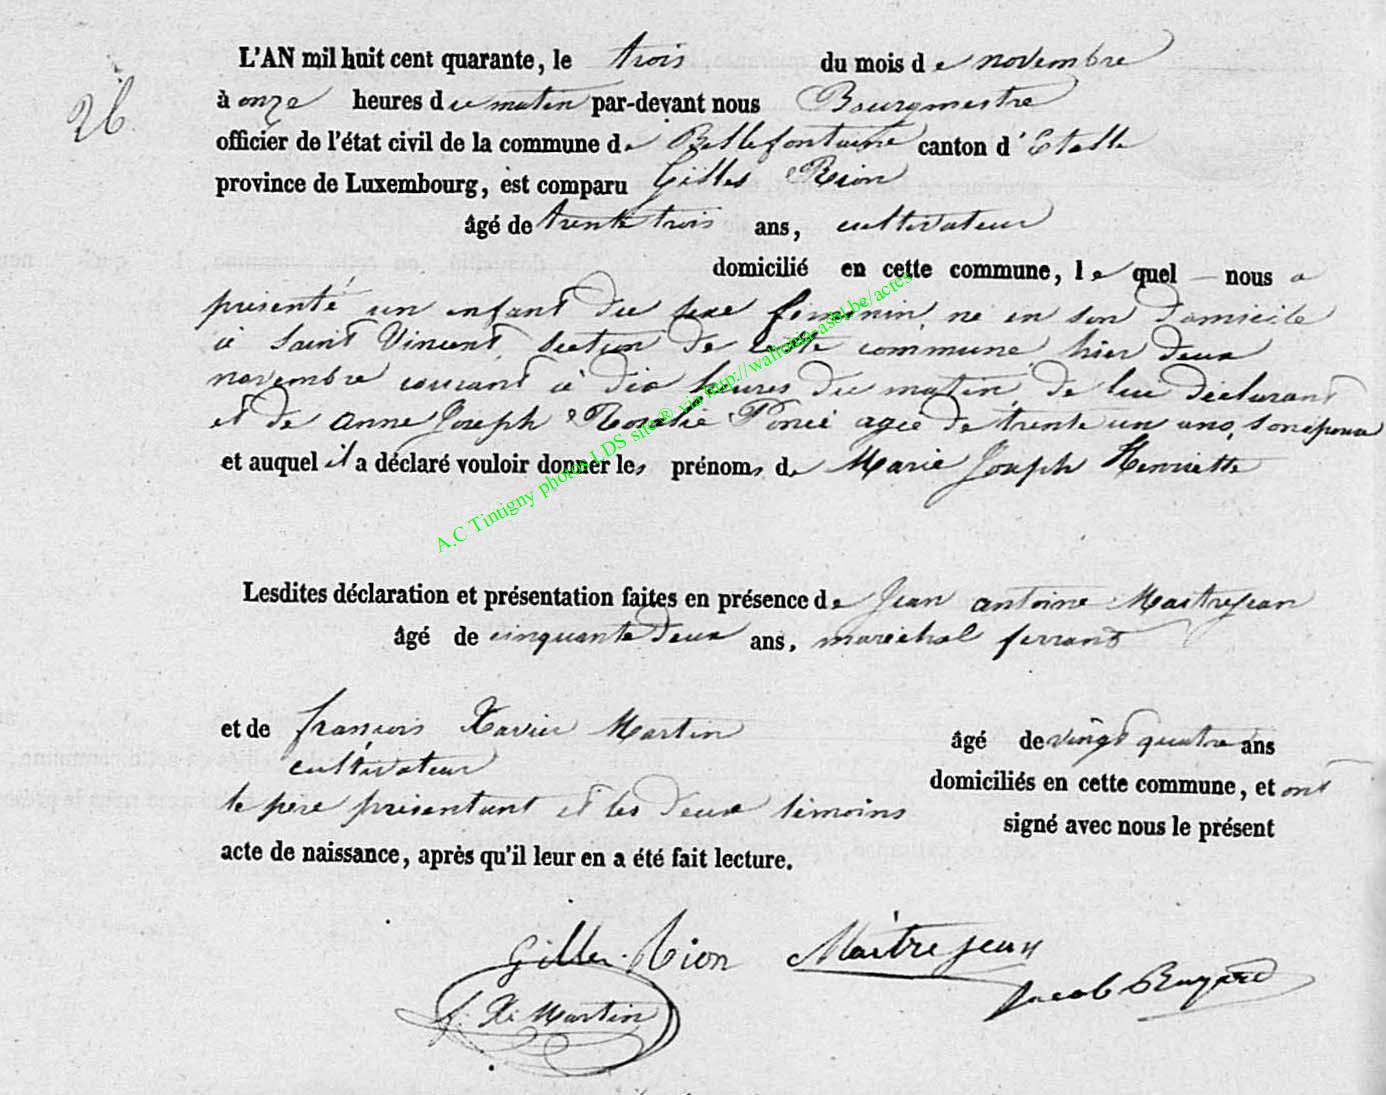 26
L'AN mil huit cent quarante, le trois du mois de novembre
à onze heures du matin par-devant nous Bourgmestre
officier de l'état civil de la commune de Bellefontaine canton d'Etalle
province de Luxembourg, est comparu Gilles Rion
âgé de trente trois ans, cultivateur
domicilié en cette commune, le quel nous a
présenté un enfant du sexe féminin, né en son domicile
à Saint Vincent, section de cette commune hier deux
novembre courant à dix heures du matin, de lui déclarant
et de anne Joseph Rosalie Poncé agée de trente un ans, son épouse
et auquel il a déclaré vouloir donner les prénoms de Marie Joseph Henriette
A.C Tintigny photos LDS site® via http://wallonia-asbl.be/actes
Lesdites déclaration et présentation faites en présence de Jean antoine Maitrejean
âgé de cinquante deux ans, maréchal ferrant
et de françois Xavier Martin âgé de vingt quatre ans
cultivateur domiciliés en cette commune, et ont
le père présentant et les deux témoins signé avec nous le présent
acte de naissance, après qu'il leur en a été fait lecture.
Gilles Rion Maitrejean
f. X. Martin Jacob